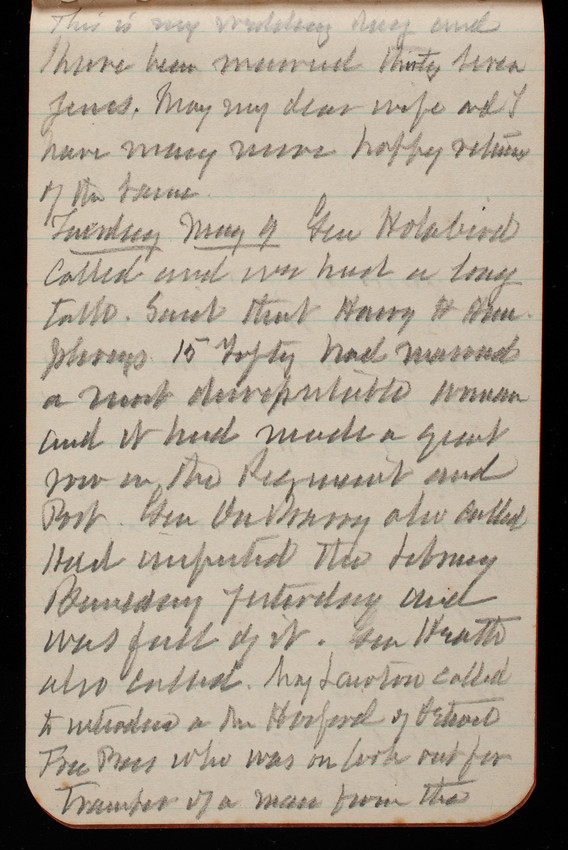 This is my wedding day and
I have been married thirty seven
years. May my dear wife and I
have many more happy returns
of the same
Tuesday May 9 Gen Holabird
Called and we had a long
talk. Said that Harry H
15 Infty had married
a most disreputable woman
and it had made a great
row in the Regiment and
Post. Gen also called
Had inspected the Library
Building yesterday and
was full of it. Gen Heath
also called. Maj Lawton called
to introduce a Mr Hosford of Detroit
Free Press who was on look out for
Transfer of a man from the